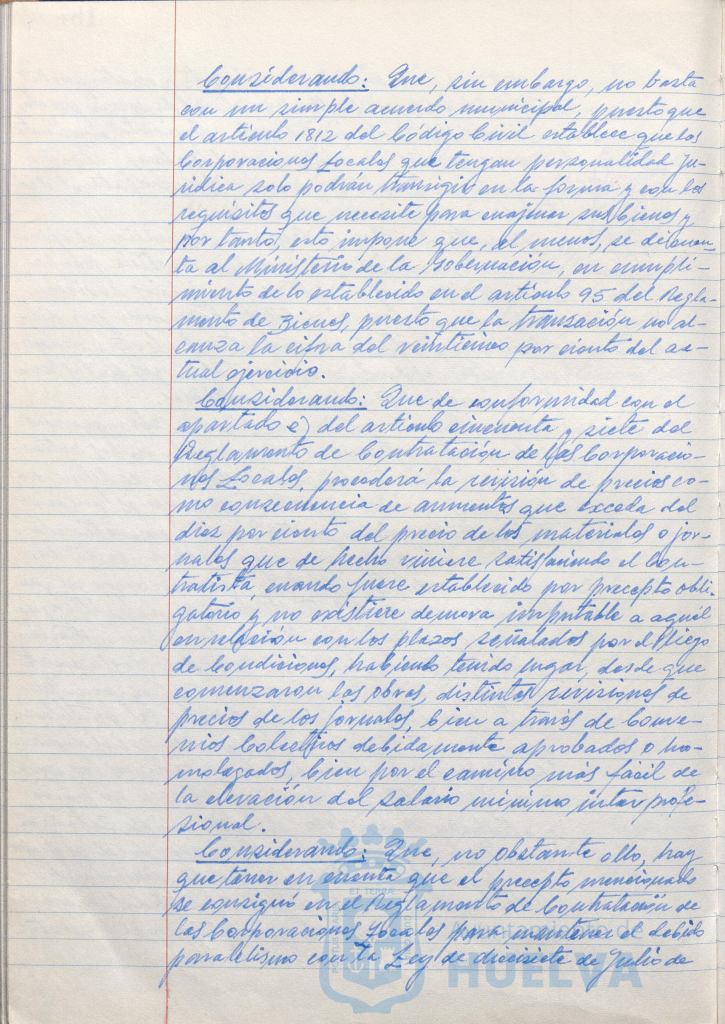 Considerando: Que, sin embargo, no basta
con un simple acuerdo municipal, puesto que
el artículo 1812 del Código Civil establece que las
Corporaciones Locales que tengan personalidad ju-
rídica solo podrán transigir en la forma y con los
requisitos que necesite para enajenar sus bienes y
por tanto, esto impone que, al menos, se dé cuen-
ta al Ministerio de la Gobernación, en cumpli-
miento de lo establecido en el artículo 95 del Regla-
mento de Bienes, puesto que la transación no al-
canza la cifra del veinticinco por ciento del ac-
tual ejercicio.
Considerando: Que de conformidad con el
apartado e) del artículo cincuenta y siete del
Reglamento de Contratación de las Corporacio-
nes Locales, procederá la revisión de precios co-
mo consecuencia de aumentos que exceda del
diez por ciento del precio de los materiales o jor-
nales que de hecho viniere satisfaciendo el Con-
tratista, cuando fuere establecido por precepto obli-
gatorio y no existiere demora imputable a aquél
en relación con los plazos señalados por el Pliego
de Condiciones, habiendo tenido lugar, desde que
comenzaron las obras, distintas revisiones de
precios de los jornales, bien a través de Conve-
nios Colectivos debidamente aprobados o ho-
mologados, bien por el camino más fácil de
la elevación del salario mínimo interprofe-
sional.
Considerando: Que, no obstante ello, hay
que tener en cuenta que el precepto mencionado
se consignó en el Reglamento de Contratación de
las Corporaciones Locales para mantener el debido
paralelismo con la Ley de diecisiete de Julio de
HUELVA